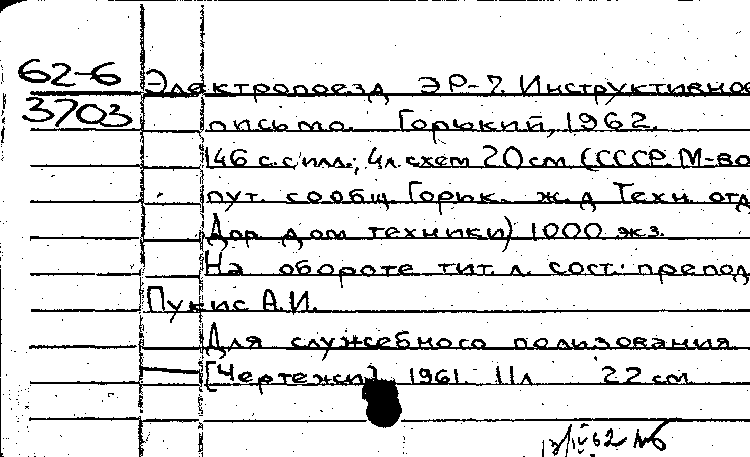 62-6
3703
Электропоезд ЭР-7. Инструктивное
письмо. Горький, 1962.
146 с. с илл.; 4 л. схем 20 см (СССР. М-во
пут. сообщ. Горьк. ж. д Техн. отд
Дор дом техники) 1000 экз.
На обороте тит. л. сост.: препод
Пукис А.И.
Для служебного ползования
[Чертежи] 1961. 11л 22 см